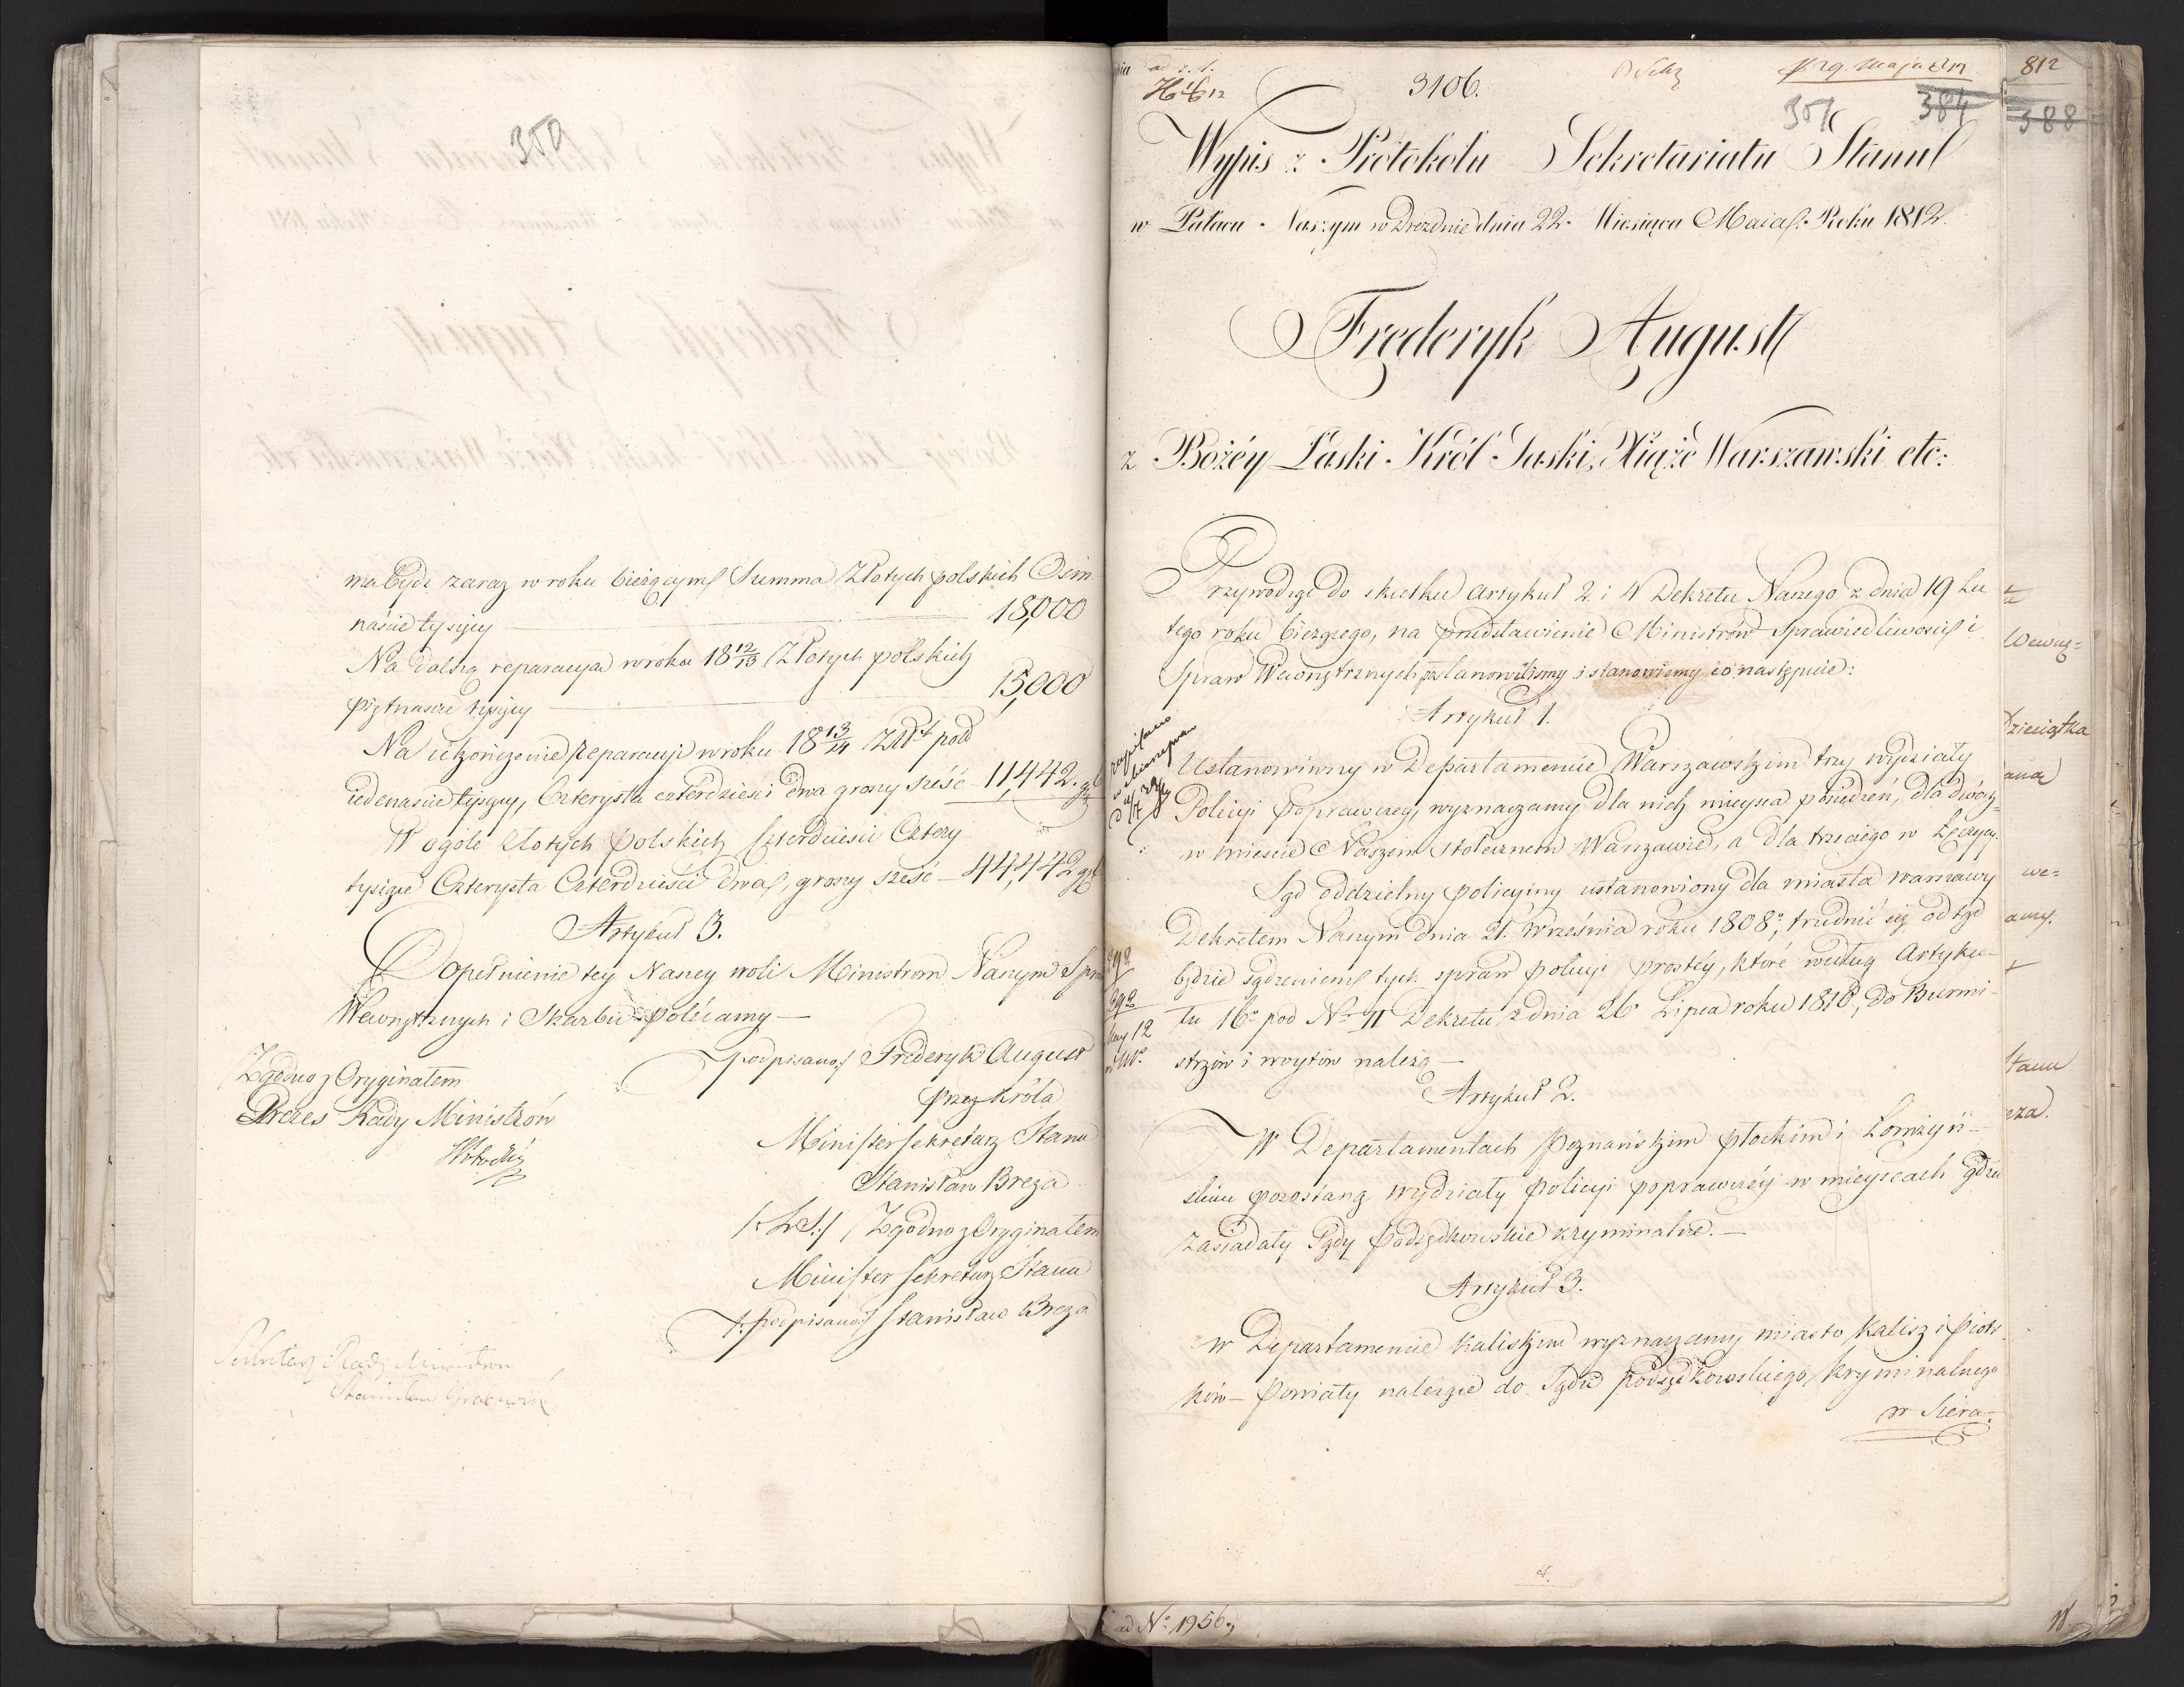 350
ma bydź zaraz w roku bieżącym Summa Złotych polskich Ośm
naście tysięcy — 18,000
Na dalszą reparacyą w roku 18 12/13 Złotych polskich
piętnaście tysięcy — 15,000
Na ukończenie reparacyi w roku 18 13/14 Złot pol
iedenaście tysięcy, Czterysta czterdzieści dwa groszy sześć — 11,442. g 6
W ogóle złotych polskich Czterdzieści Cztery
tysiące Czterysta Czterdzieści dwa, groszy sześć — 44,442 g 6
Artykuł 3.
Dopełnienie tey Naszey woli Ministrom Naszym Spra
Wewnętrznych i Skarbu polecamy —
/podpisano:/ Fryderyk August
przez Króla
Minister Sekretarz Stanu
Stanisław Breza
/:LS:/ Zgodno z Oryginałem
Minister Sekretarz Stanu
/:podpisano:/ Stanisław Breza
Zgodno z Oryginałem
Prezes Rady Ministrów
Sekretarz Rady Ministrów
Stanisław Grabowski
3106.
351
384
Wypis z Protokołu Sekretariatu Stanu
w Pałacu Naszym w Dreznie dnia 22. Miesiąca Maia Roku 1812.
Fryderyk August
z Bożéy Łaski Król Saski, Xiąże Warszawski etc:
Przywodząc do skutku artykuł 2. i 4 Dekretu Naszego z dnia 19 Lu
tego roku bieżącego, na przedstawienie Ministrów Sprawiedliwości i
Spraw Wewnętrznych postanowiliśmy i stanowiemy co następuie:
Artykuł 1.
Ustanowiwszy w Departamencie Warszawskim trzy wydziały
Policyi poprawczey, wyznaczamy dla nich mieysca posiedzeń, dla dwóch
w mieście Naszem stołecznem Warszawie, a dla trzeciego w Łęczycy.
Sąd oddzielny policyiny ustanowiony dla miasta Warszawy
Dekretem Naszym dnia 21. Września roku 1808, trudnić się odtąd
będzie sądzeniem tych spraw policyi prostéy, które według Artyku-
łu 16o pod No II Dekretu z dnia 26 Lipca roku 1810, do Burmi-
strzów i woytów należą —
Artykuł 2.
W Departamentach Poznańskim płockim i Łomżyń-
skim pozostaną wydziały policyi poprawczéy w mieyscach gdzie
zasiadały Sądy Podsędkowskie kryminalne. —
Artykuł 3.
w Departamencie Kaliskim wyznaczamy miasto Kalisz i Piotr
ków — Powiaty należące do Sądu podsędkowskiego kryminalnego
w Siera-
812
388
Wewnę=
Dzieciątka
we=
Stanu
eza.
ad No 1956.